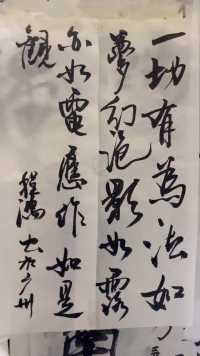 一切有為法如
夢幻泡影如露
亦如電應作如是
觀
書於廣州